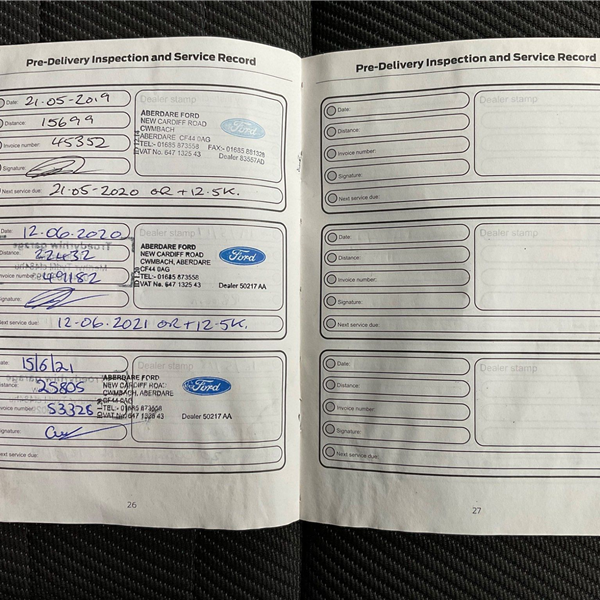 Pre-Delivery Inspection and Service Record
Date: 21-05-2019
Distance: 15699
Invoice number: 45352
Signature:
Next service due: 21-05-2020 OR +12.5K.
Dealer stamp
ABERDARE FORD
NEW CARDIFF ROAD
CWMBACH
ABERDARE CF44 0AG
TEL:- 01685 873558 FAX:- 01685 881328
VAT No. 647 1325 43 Dealer 83557AD
Ford
Date: 12-06-2020
Distance: 22432
Invoice number: 49182
Signature:
Next service due: 12-06-2021 OR +12.5K.
Dealer stamp
ABERDARE FORD
NEW CARDIFF ROAD
CWMBACH, ABERDARE
CF44 0AG
TEL:- 01685 873558
VAT No. 647 1325 43 Dealer 50217 AA
Ford
Date: 15/6/21
Distance: 25805
Invoice number: 53326
Signature:
Next service due:
Dealer stamp
ABERDARE FORD
NEW CARDIFF ROAD
CWMBACH, ABERDARE
CF44 0AG
TEL:- 01685 873558
VAT No. 647 1325 43 Dealer 50217 AA
Ford
26
Pre-Delivery Inspection and Service Record
Date:
Distance:
Invoice number:
Signature:
Next service due:
Dealer stamp
Date:
Distance:
Invoice number:
Signature:
Next service due:
Dealer stamp
Date:
Distance:
Invoice number:
Signature:
Next service due:
Dealer stamp
27